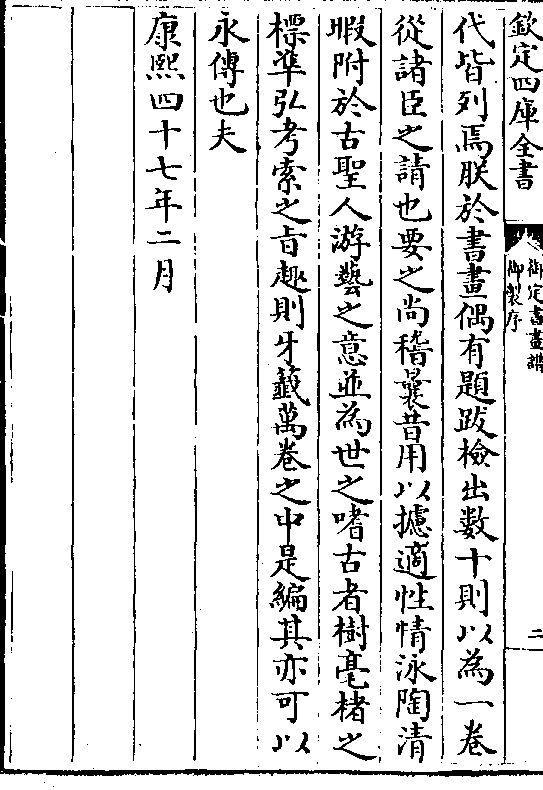 欽定四庫全書
御定書畫譜
御製序
二
代皆列焉朕於書畫偶有題跋檢出數十則以為一卷
從諸臣之請也要之尚稽曩昔用以攄適性情泳陶清
暇附於古聖人游藝之意並為世之嗜古者樹毫楮之
標準弘考索之旨趣則牙籖萬卷之中是編其亦可以
永傳也夫
康熙四十七年二月